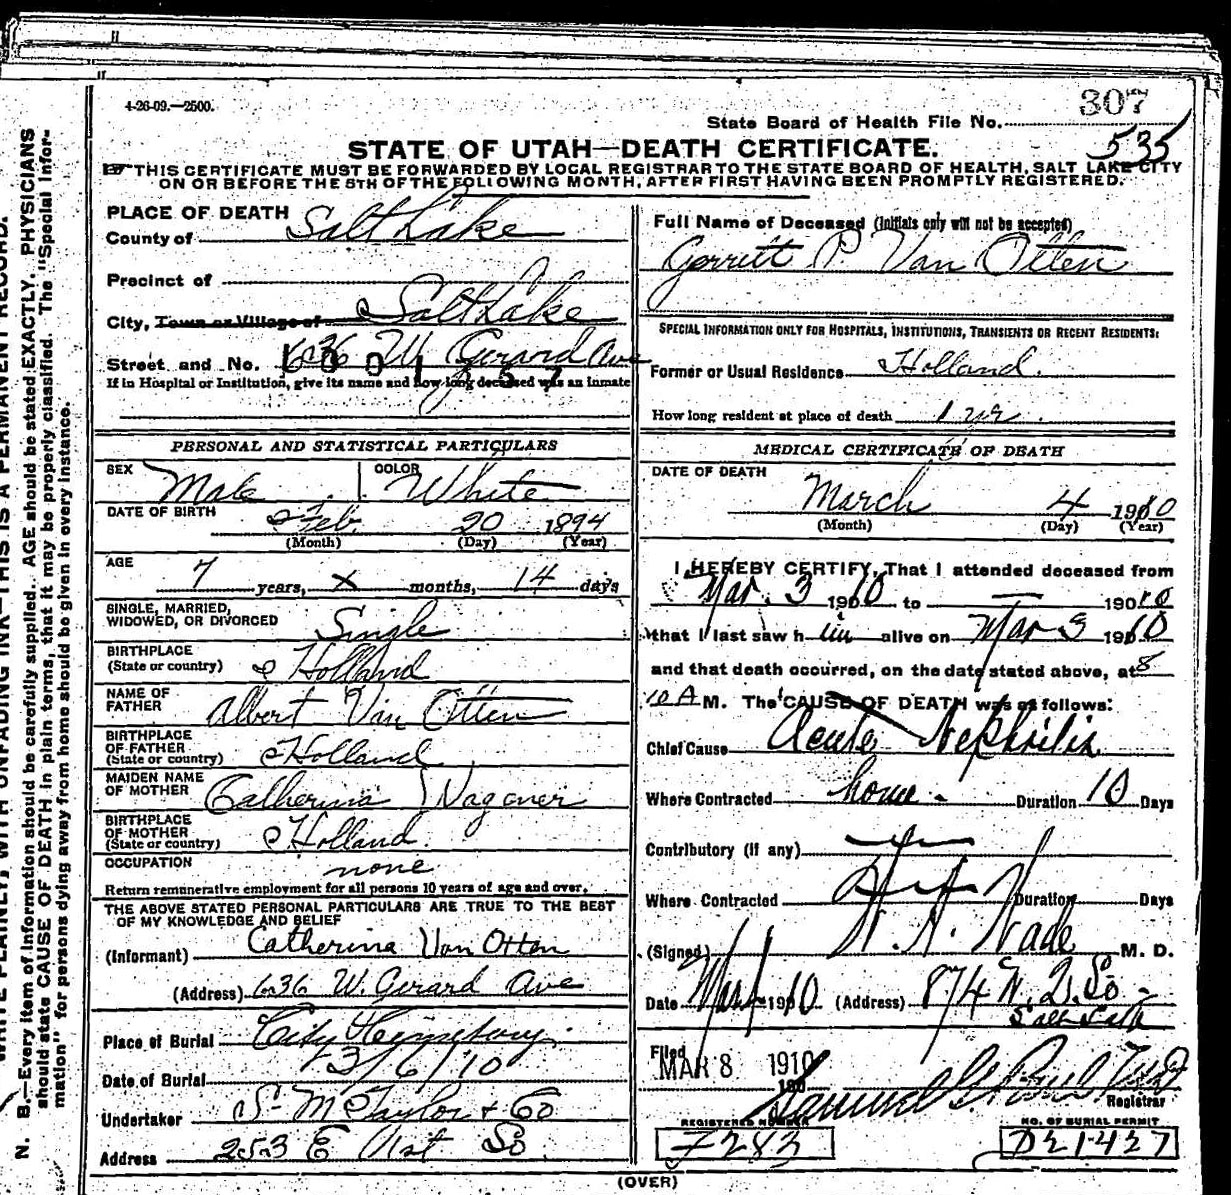 4-26-09.—2500.
307
State Board of Health File No.
535
STATE OF UTAH—DEATH CERTIFICATE.
THIS CERTIFICATE MUST BE FORWARDED BY LOCAL REGISTRAR TO THE STATE BOARD OF HEALTH, SALT LAKE CITY
ON OR BEFORE THE 5TH OF THE FOLLOWING MONTH, AFTER FIRST HAVING BEEN PROMPTLY REGISTERED.
PLACE OF DEATH
County of Salt Lake
Precinct of
City, Town or Village of Salt Lake
Street and No. 636 W Gerard Ave
If in Hospital or Institution, give its name and how long deceased was an inmate
PERSONAL AND STATISTICAL PARTICULARS
SEX Male COLOR White
DATE OF BIRTH Feb 20 1894
(Month) (Day) (Year)
AGE 7 years, x months, 14 days
SINGLE, MARRIED,
WIDOWED, OR DIVORCED Single
BIRTHPLACE
(State or country) Holland
NAME OF
FATHER Albert Van Otten
BIRTHPLACE
OF FATHER
(State or country) Holland
MAIDEN NAME
OF MOTHER Catherina Wagener
BIRTHPLACE
OF MOTHER
(State or country) Holland.
OCCUPATION none
Return remunerative employment for all persons 10 years of age and over.
THE ABOVE STATED PERSONAL PARTICULARS ARE TRUE TO THE BEST
OF MY KNOWLEDGE AND BELIEF
(Informant) Catherina Van Otten
(Address) 636 W. Gerard Ave
Place of Burial City Cemetery.
Date of Burial 3/6/10
Undertaker S. M. Taylor & Co
Address 253 E 1st So
Full Name of Deceased (Initials only will not be accepted)
Gerritt P. Van Otten
SPECIAL INFORMATION ONLY FOR HOSPITALS, INSTITUTIONS, TRANSIENTS OR RECENT RESIDENTS:
Former or Usual Residence Holland.
How long resident at place of death 1 yr.
MEDICAL CERTIFICATE OF DEATH
DATE OF DEATH
March 4 1910
(Month) (Day) (Year)
I HEREBY CERTIFY, That I attended deceased from
Mar. 3 1910 to — 1910
that I last saw him alive on Mar 3 1910
and that death occurred, on the date stated above, at 8
10 A M. The CAUSE OF DEATH was as follows:
Chief Cause Acute Nephritis
Where Contracted home - Duration 10 Days
Contributory (if any)
Where Contracted Duration Days
(Signed) Wade M. D.
Date Mar 1910 (Address) 874 W. 2. So -
Salt Lake
Filed MAR 8 1910
Samuel G. Paul
Registrar
REGISTERED NUMBER
7283
NO. OF BURIAL PERMIT
D21427
(OVER)
N. B.—Every item of information should be carefully supplied. AGE should be stated EXACTLY. PHYSICIANS
should state CAUSE OF DEATH in plain terms, that it may be properly classified. The "Special Infor-
mation" for persons dying away from home should be given in every instance.
WRITE PLAINLY, WITH UNFADING INK—THIS IS A PERMANENT RECORD.